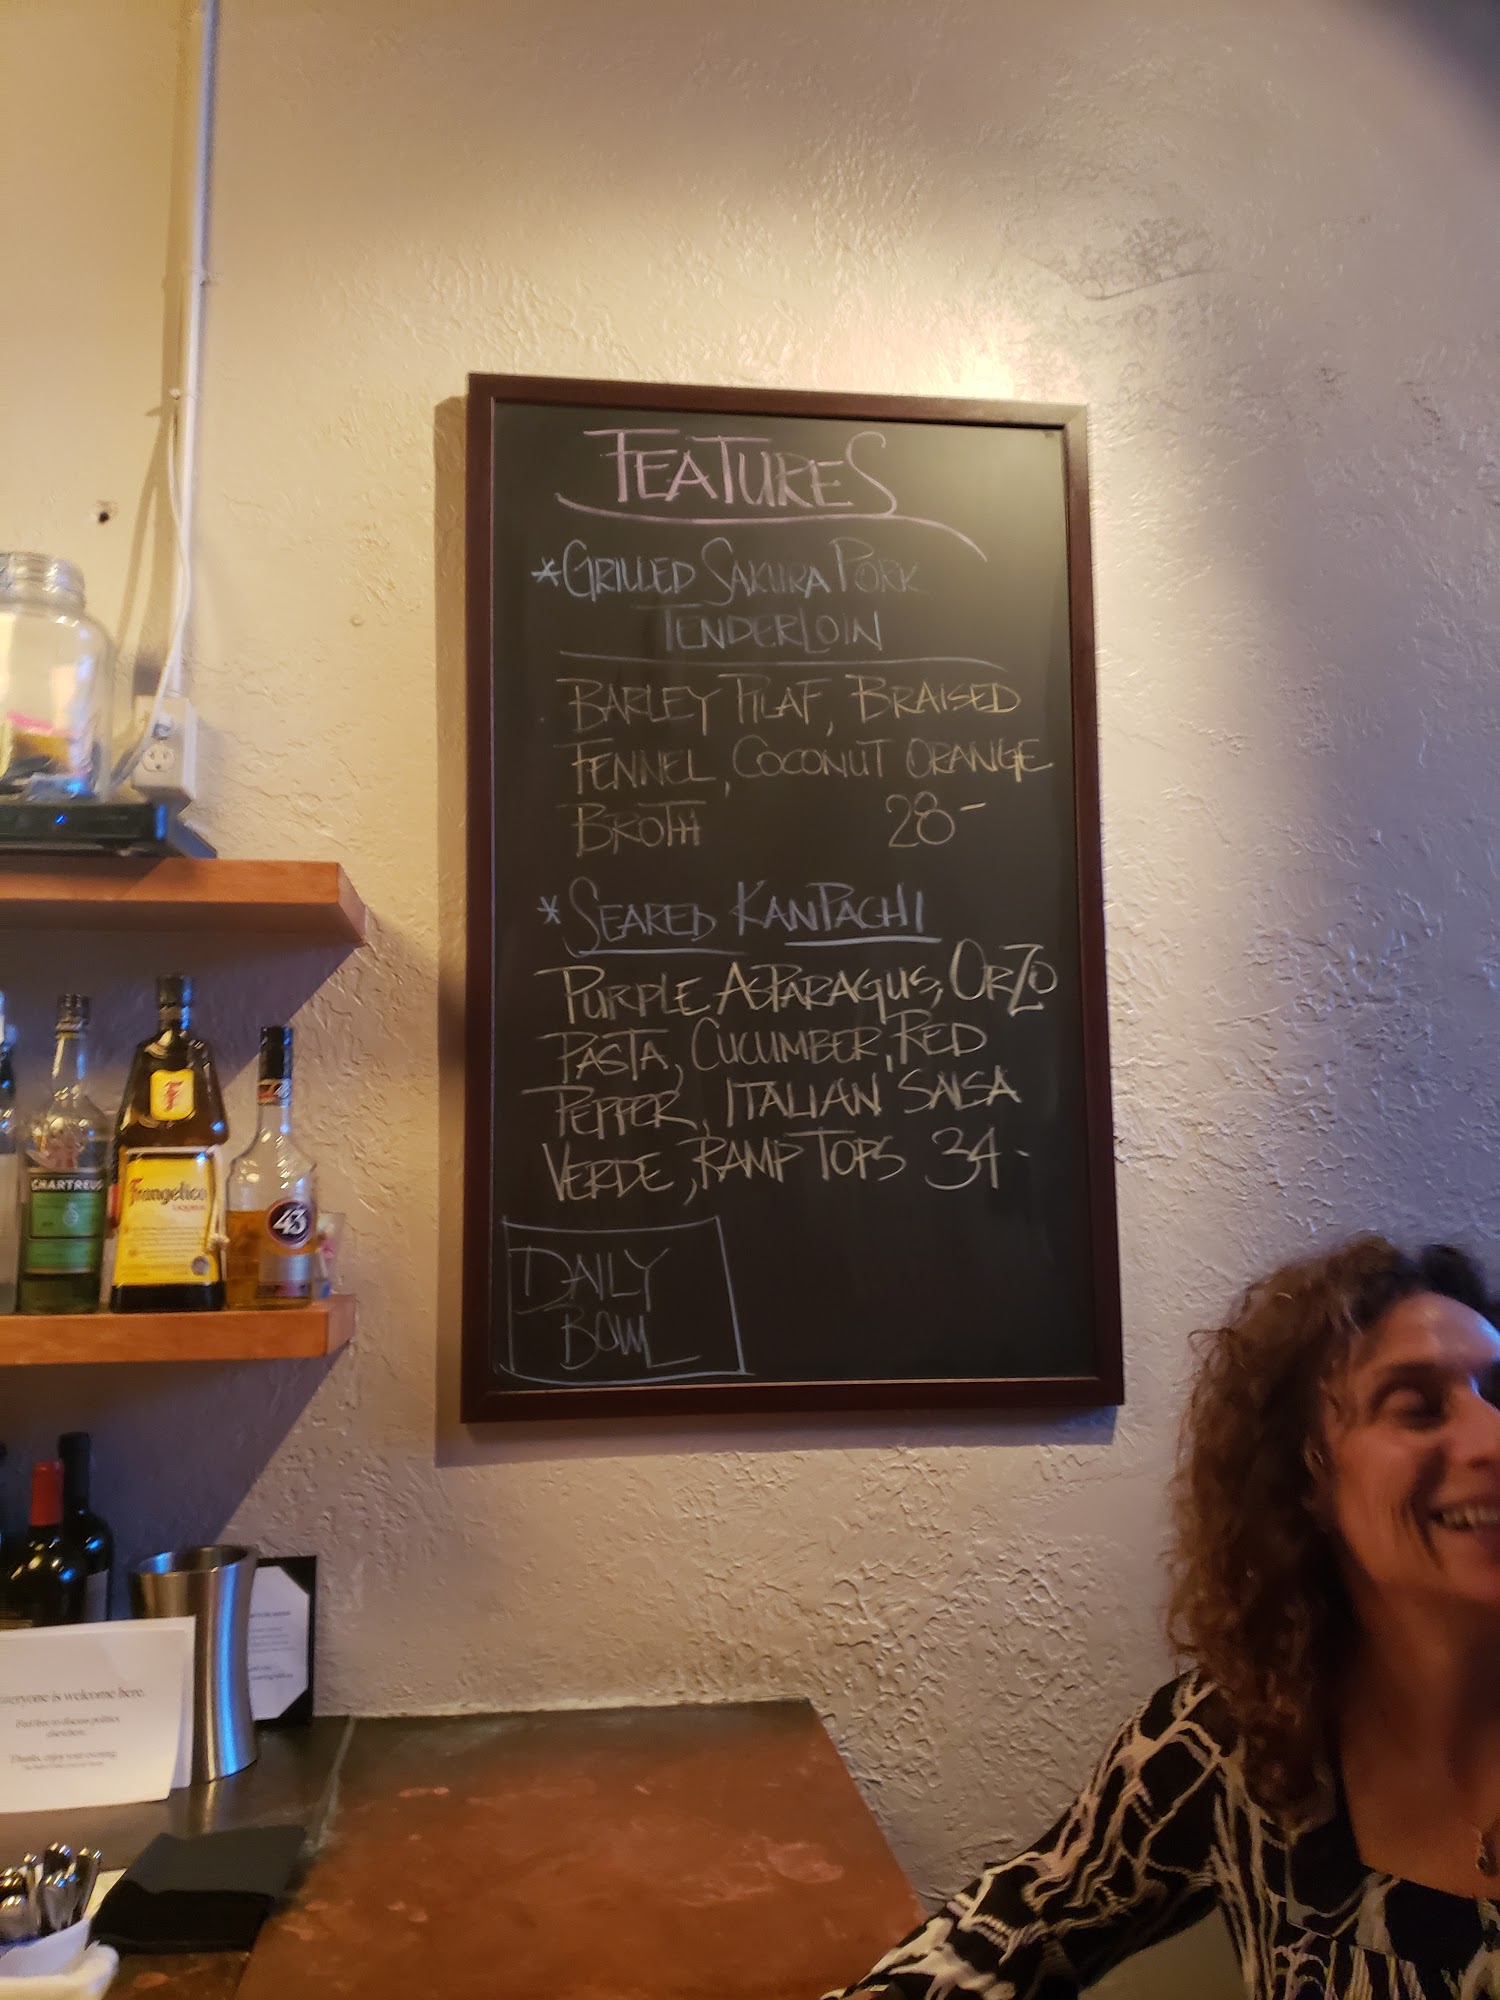 FEATURES
*GRILLED SAKURA PORK
TENDERLOIN
BARLEY PILAF, BRAISED
FENNEL, COCONUT ORANGE
BROTH 28-
*SEARED KANPACHI
PURPLE ASPARAGUS, ORZO
PASTA, CUCUMBER, RED
PEPPER, ITALIAN SALSA
VERDE, RAMP TOPS 34-
DAILY
BOWL
CHARTREUS
Frangelico
LIQUEUR
43
everyone is welcome here.
Feel free to discuss politics
elsewhere.
Thanks, enjoy your evening.